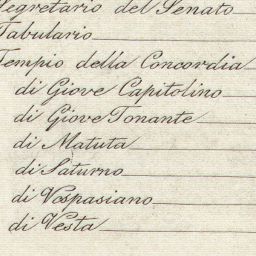 Segretario del Senato
Tabulario
Tempio della Concordia
di Giove Capitolino
di Giove Tonante
di Matuta
di Saturno
di Vespasiano
di Vesta